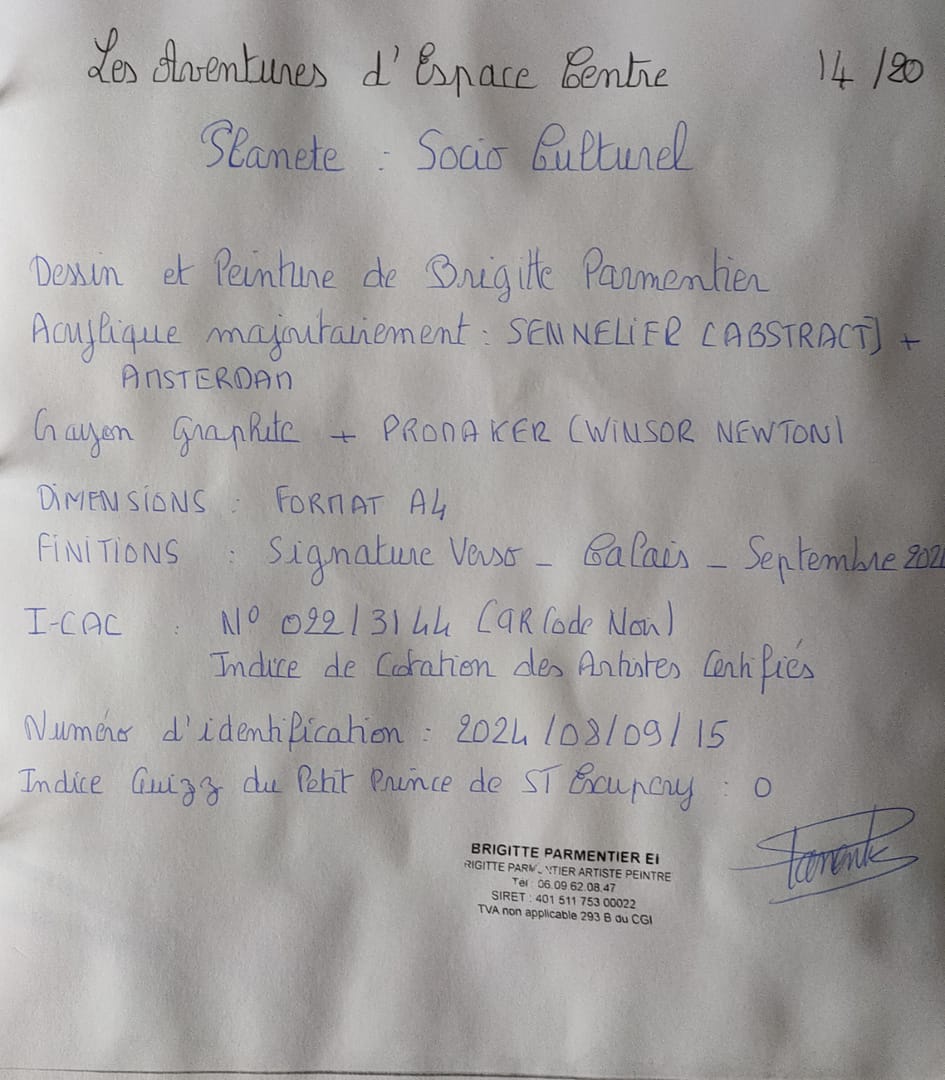 Les Aventures d'Espace Centre 14/20
Planete : Socio Culturel
Dessin et Peinture de Brigitte Parmentier
Acrylique majoritairement : SENNELIER (ABSTRACT) +
AMSTERDAM
Crayon Graphite + PROMAKER (WINSOR NEWTON)
DIMENSIONS : FORMAT A4
FINITIONS : Signature Verso - Calais - Septembre
I-CAC : N° 022/3144 (QR Code Noir)
Indice de Cotation des Artistes Certifiés
Numéro d'identification : 2024/08/09/15
Indice Quizz du Petit Prince de ST Exupery : 0
BRIGITTE PARMENTIER EI
RIGITTE PARM NTIER ARTISTE PEINTRE
Tél : 06.09.62.08.47
SIRET : 401 511 753 00022
TVA non applicable 293 B du CGI